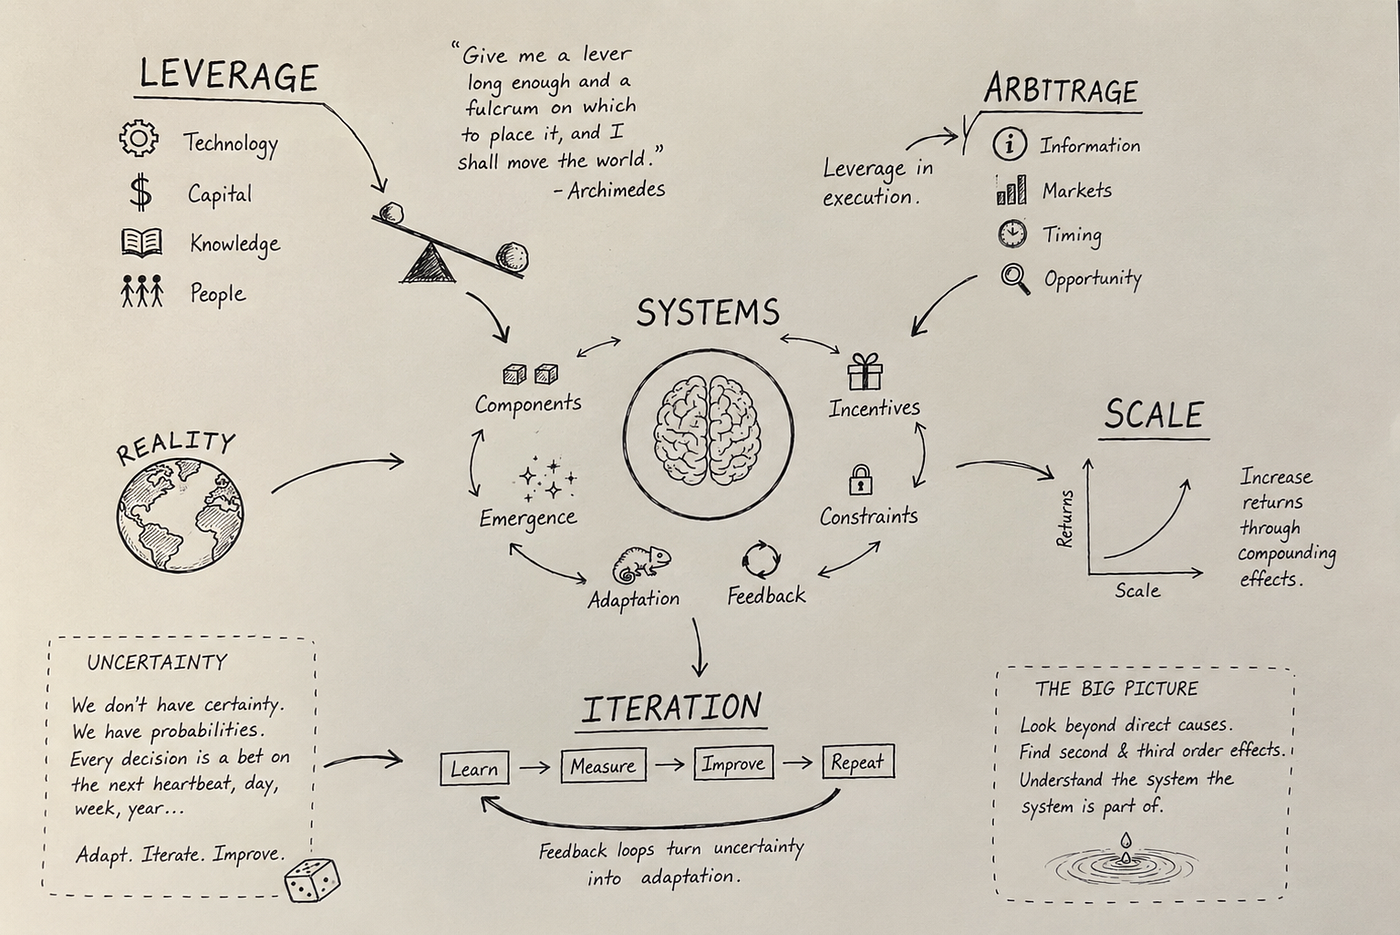 LEVERAGE
Technology
Capital
Knowledge
People
“Give me a lever
long enough and a
fulcrum on which
to place it, and I
shall move the world.”
- Archimedes
ARBITRAGE
Leverage in
execution.
i
Information
Markets
Timing
Opportunity
$
SYSTEMS
Components
Incentives
Emergence
Constraints
Adaptation
Feedback
REALITY
SCALE
Returns
Scale
Increase
returns
through
compounding
effects.
UNCERTAINTY
We don't have certainty.
We have probabilities.
Every decision is a bet on
the next heartbeat, day,
week, year...
Adapt. Iterate. Improve.
ITERATION
Learn
Measure
Improve
Repeat
Feedback loops turn uncertainty
into adaptation.
THE BIG PICTURE
Look beyond direct causes.
Find second & third order effects.
Understand the system the
system is part of.